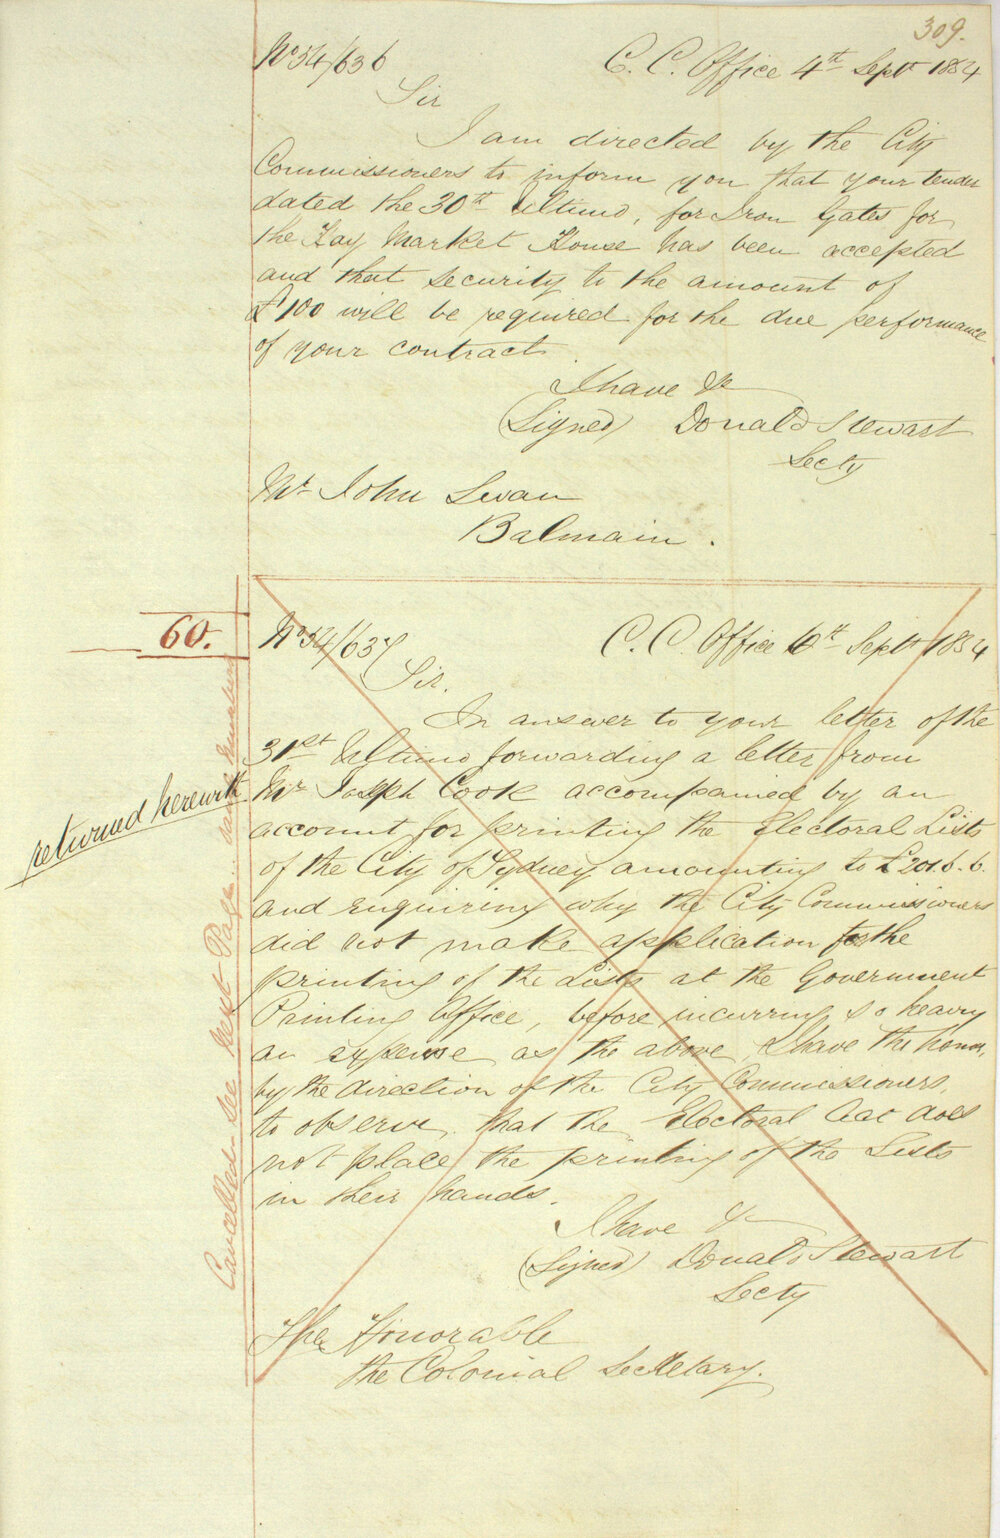 309.
No 54/636 C. C. Office 4th Septr 1854
Sir
I am directed by the City
Commissioners to inform you that your tender
dated the 30th Ultimo, for Iron Gates for
the Hay Market House has been accepted
and that security to the amount of
£100 will be required for the due performance
of your contract.
I have &c
(Signed) Donald Stewart
Secty
Mr John Swan
Balmain.
60.
No 54/637 C. C. Office 6th Septr 1854
Sir.
In answer to your letter of the
31st Ultimo forwarding a letter from
returned herewith
Mr Joseph Cook accompanied by an
account for printing the Electoral Lists
of the City of Sydney amounting to £201.6.6.
and enquiring why the City Commissioners
did not make application for the
printing of the Lists at the Government
Printing Office, before incurring so heavy
an expense as the above, I have the honor,
by the direction of the City Commissioners,
to observe, that the Electoral Act does
not place the printing of the Lists
in their hands.
I have &c
(Signed) Donald Stewart
Secty
The Honorable
the Colonial Secretary.
Cancelled - See Next Page